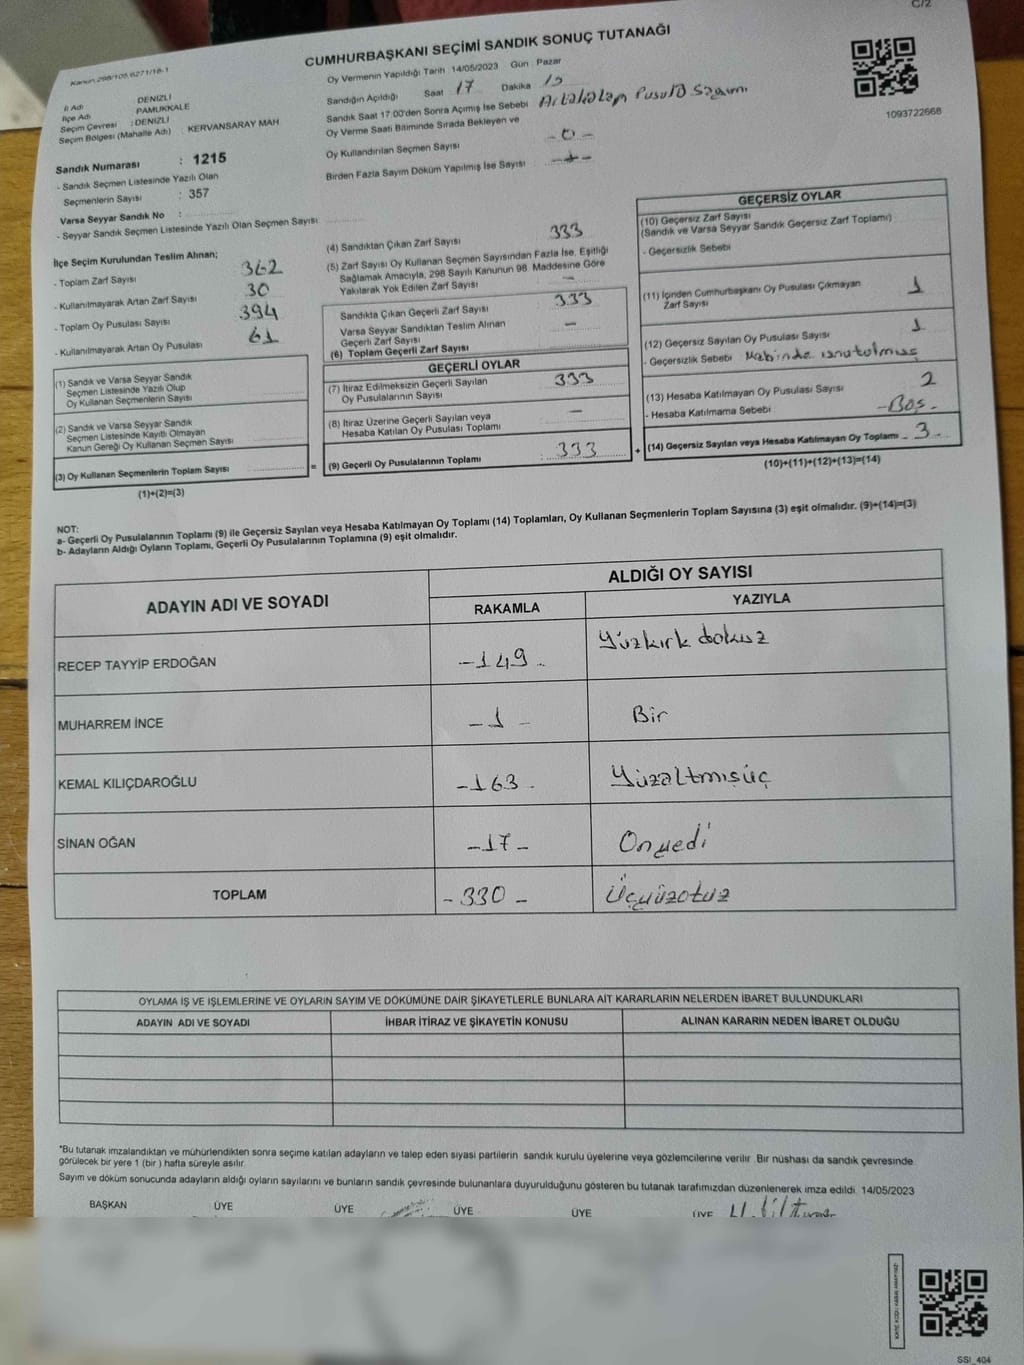 C/2
Kanun:298/105,6271/18-1
CUMHURBAŞKANI SEÇİMİ SANDIK SONUÇ TUTANAĞI
İl Adı : DENİZLİ
İlçe Adı : PAMUKKALE
Seçim Çevresi : DENİZLİ
Seçim Bölgesi (Mahalle Adı) : KERVANSARAY MAH
Sandık Numarası : 1215
- Sandık Seçmen Listesinde Yazılı Olan
Seçmenlerin Sayısı : 357
Varsa Seyyar Sandık No :
- Seyyar Sandık Seçmen Listesinde Yazılı Olan Seçmen Sayısı
Oy Vermenin Yapıldığı Tarih 14/05/2023 Gün : Pazar
Sandığın Açıldığı Saat 17 Dakika 15
Sandık Saat 17:00'den Sonra Açımış İse Sebebi Pusula Sayımı
Oy Verme Saati Bitiminde Sırada Bekleyen ve
Oy Kullandırılan Seçmen Sayısı - 0 -
Birden Fazla Sayım Döküm Yapılmış İse Sayısı
1093722668
İlçe Seçim Kurulundan Teslim Alınan;
- Toplam Zarf Sayısı 362
- Kullanılmayarak Artan Zarf Sayısı 30
- Toplam Oy Pusulası Sayısı 394
- Kullanılmayarak Artan Oy Pusulası 61
(1) Sandık ve Varsa Seyyar Sandık
Seçmen Listesinde Yazılı Olup
Oy Kullanan Seçmenlerin Sayısı
(2) Sandık ve Varsa Seyyar Sandık
Seçmen Listesinde Kayıtlı Olmayan
Kanun Gereği Oy Kullanan Seçmen Sayısı
(3) Oy Kullanan Seçmenlerin Toplam Sayısı
(1)+(2)=(3)
=
(4) Sandıktan Çıkan Zarf Sayısı 333
(5) Zarf Sayısı Oy Kullanan Seçmen Sayısından Fazla İse, Eşitliği
Sağlamak Amacıyla, 298 Sayılı Kanunun 98. Maddesine Göre
Yakılarak Yok Edilen Zarf Sayısı —
Sandıkta Çıkan Geçerli Zarf Sayısı 333
Varsa Seyyar Sandıktan Teslim Alınan
Geçerli Zarf Sayısı —
(6) Toplam Geçerli Zarf Sayısı
GEÇERLİ OYLAR
(7) İtiraz Edilmeksizin Geçerli Sayılan
Oy Pusulalarının Sayısı 333
(8) İtiraz Üzerine Geçerli Sayılan veya
Hesaba Katılan Oy Pusulası Toplamı —
(9) Geçerli Oy Pusulalarının Toplamı : 333
+
GEÇERSİZ OYLAR
(10) Geçersiz Zarf Sayısı
(Sandık ve Varsa Seyyar Sandık Geçersiz Zarf Toplamı)
- Geçersizlik Sebebi
(11) İçinden Cumhurbaşkanı Oy Pusulası Çıkmayan
Zarf Sayısı 1
(12) Geçersiz Sayılan Oy Pusulası Sayısı 1
- Geçersizlik Sebebi unutulmuş
(13) Hesaba Katılmayan Oy Pusulası Sayısı 2
- Hesaba Katılmama Sebebi -Boş-
(14) Geçersiz Sayılan veya Hesaba Katılmayan Oy Toplamı 3
(10)+(11)+(12)+(13)=(14)
NOT:
a- Geçerli Oy Pusulalarının Toplamı (9) ile Geçersiz Sayılan veya Hesaba Katılmayan Oy Toplamı (14) Toplamları, Oy Kullanan Seçmenlerin Toplam Sayısına (3) eşit olmalıdır. (9)+(14)=(3)
b- Adayların Aldığı Oyların Toplamı, Geçerli Oy Pusulalarının Toplamına (9) eşit olmalıdır.
ADAYIN ADI VE SOYADI ALDIĞI OY SAYISI
RAKAMLA YAZIYLA
RECEP TAYYİP ERDOĞAN -149- Yüzkırk dokuz
MUHARREM İNCE -1- Bir
KEMAL KILIÇDAROĞLU -163- Yüzaltmışüç
SİNAN OĞAN -17- Onyedi
TOPLAM -330- Üçyüzotuz
OYLAMA İŞ VE İŞLEMLERİNE VE OYLARIN SAYIM VE DÖKÜMÜNE DAİR ŞİKAYETLERLE BUNLARA AİT KARARLARIN NELERDEN İBARET BULUNDUKLARI
ADAYIN ADI VE SOYADI İHBAR İTİRAZ VE ŞİKAYETİN KONUSU ALINAN KARARIN NEDEN İBARET OLDUĞU
*Bu tutanak imzalandıktan ve mühürlendikten sonra seçime katılan adayların ve talep eden siyasi partilerin sandık kurulu üyelerine veya gözlemcilerine verilir. Bir nüshası da sandık çevresinde
görülecek bir yere 1 (bir ) hafta süreyle asılır.
Sayım ve döküm sonucunda adayların aldığı oyların sayılarını ve bunların sandık çevresinde bulunanlara duyurulduğunu gösteren bu tutanak tarafımızdan düzenlenerek imza edildi. 14/05/2023
BAŞKAN ÜYE ÜYE ÜYE ÜYE ÜYE
SSI_404